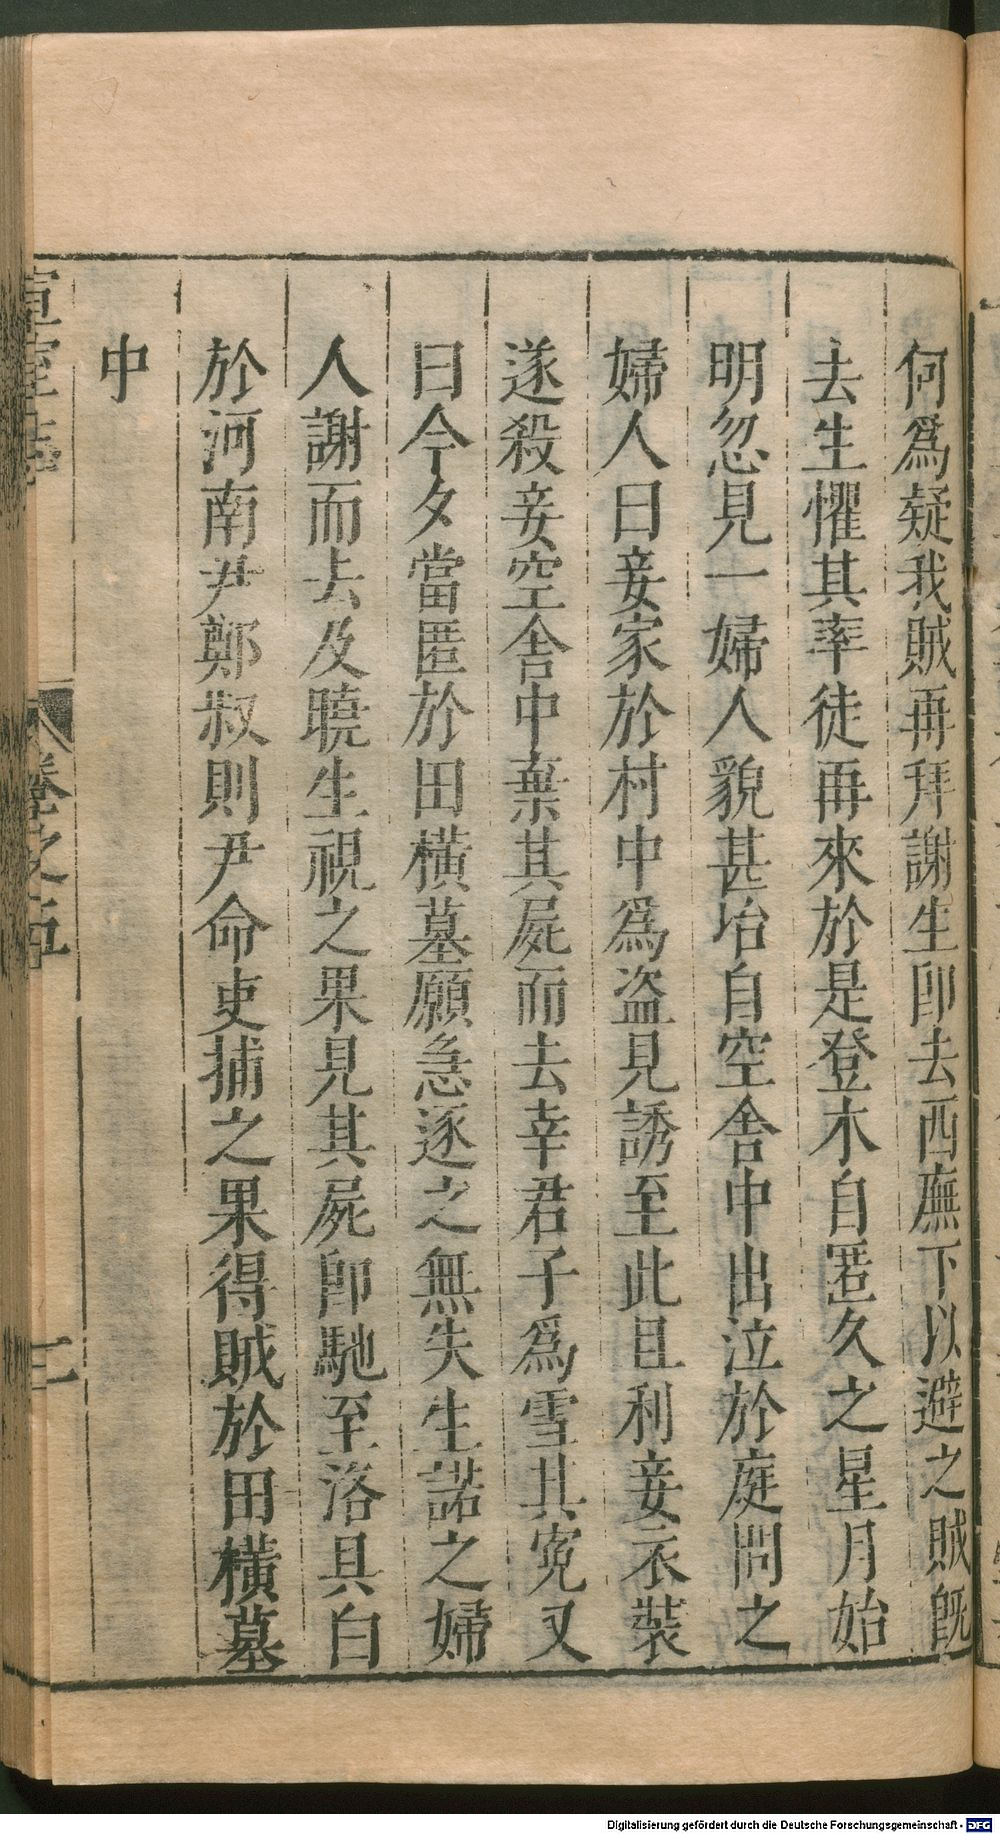 何爲疑我賊再拜謝生卽去西廡下以避之賊旣
去生懼其率徒再來於是登木自匿久之星月始
明忽見一婦人貌甚冶自空舍中出泣於庭問之
婦人曰妾家於村中爲盗見誘至此且利妾衣裝
遂殺妾空舍中棄其屍而去幸君子爲雪其寃又
曰今夕當匿於田橫墓願急逐之無失生諾之婦
人謝而去及曉生視之果見其屍卽馳至洛具白
於河南尹鄭叔則尹命吏捕之果得賊於田橫墓
中
宣室志 卷之五 二
Digitalisierung gefördert durch die Deutsche Forschungsgemeinschaft - DFG